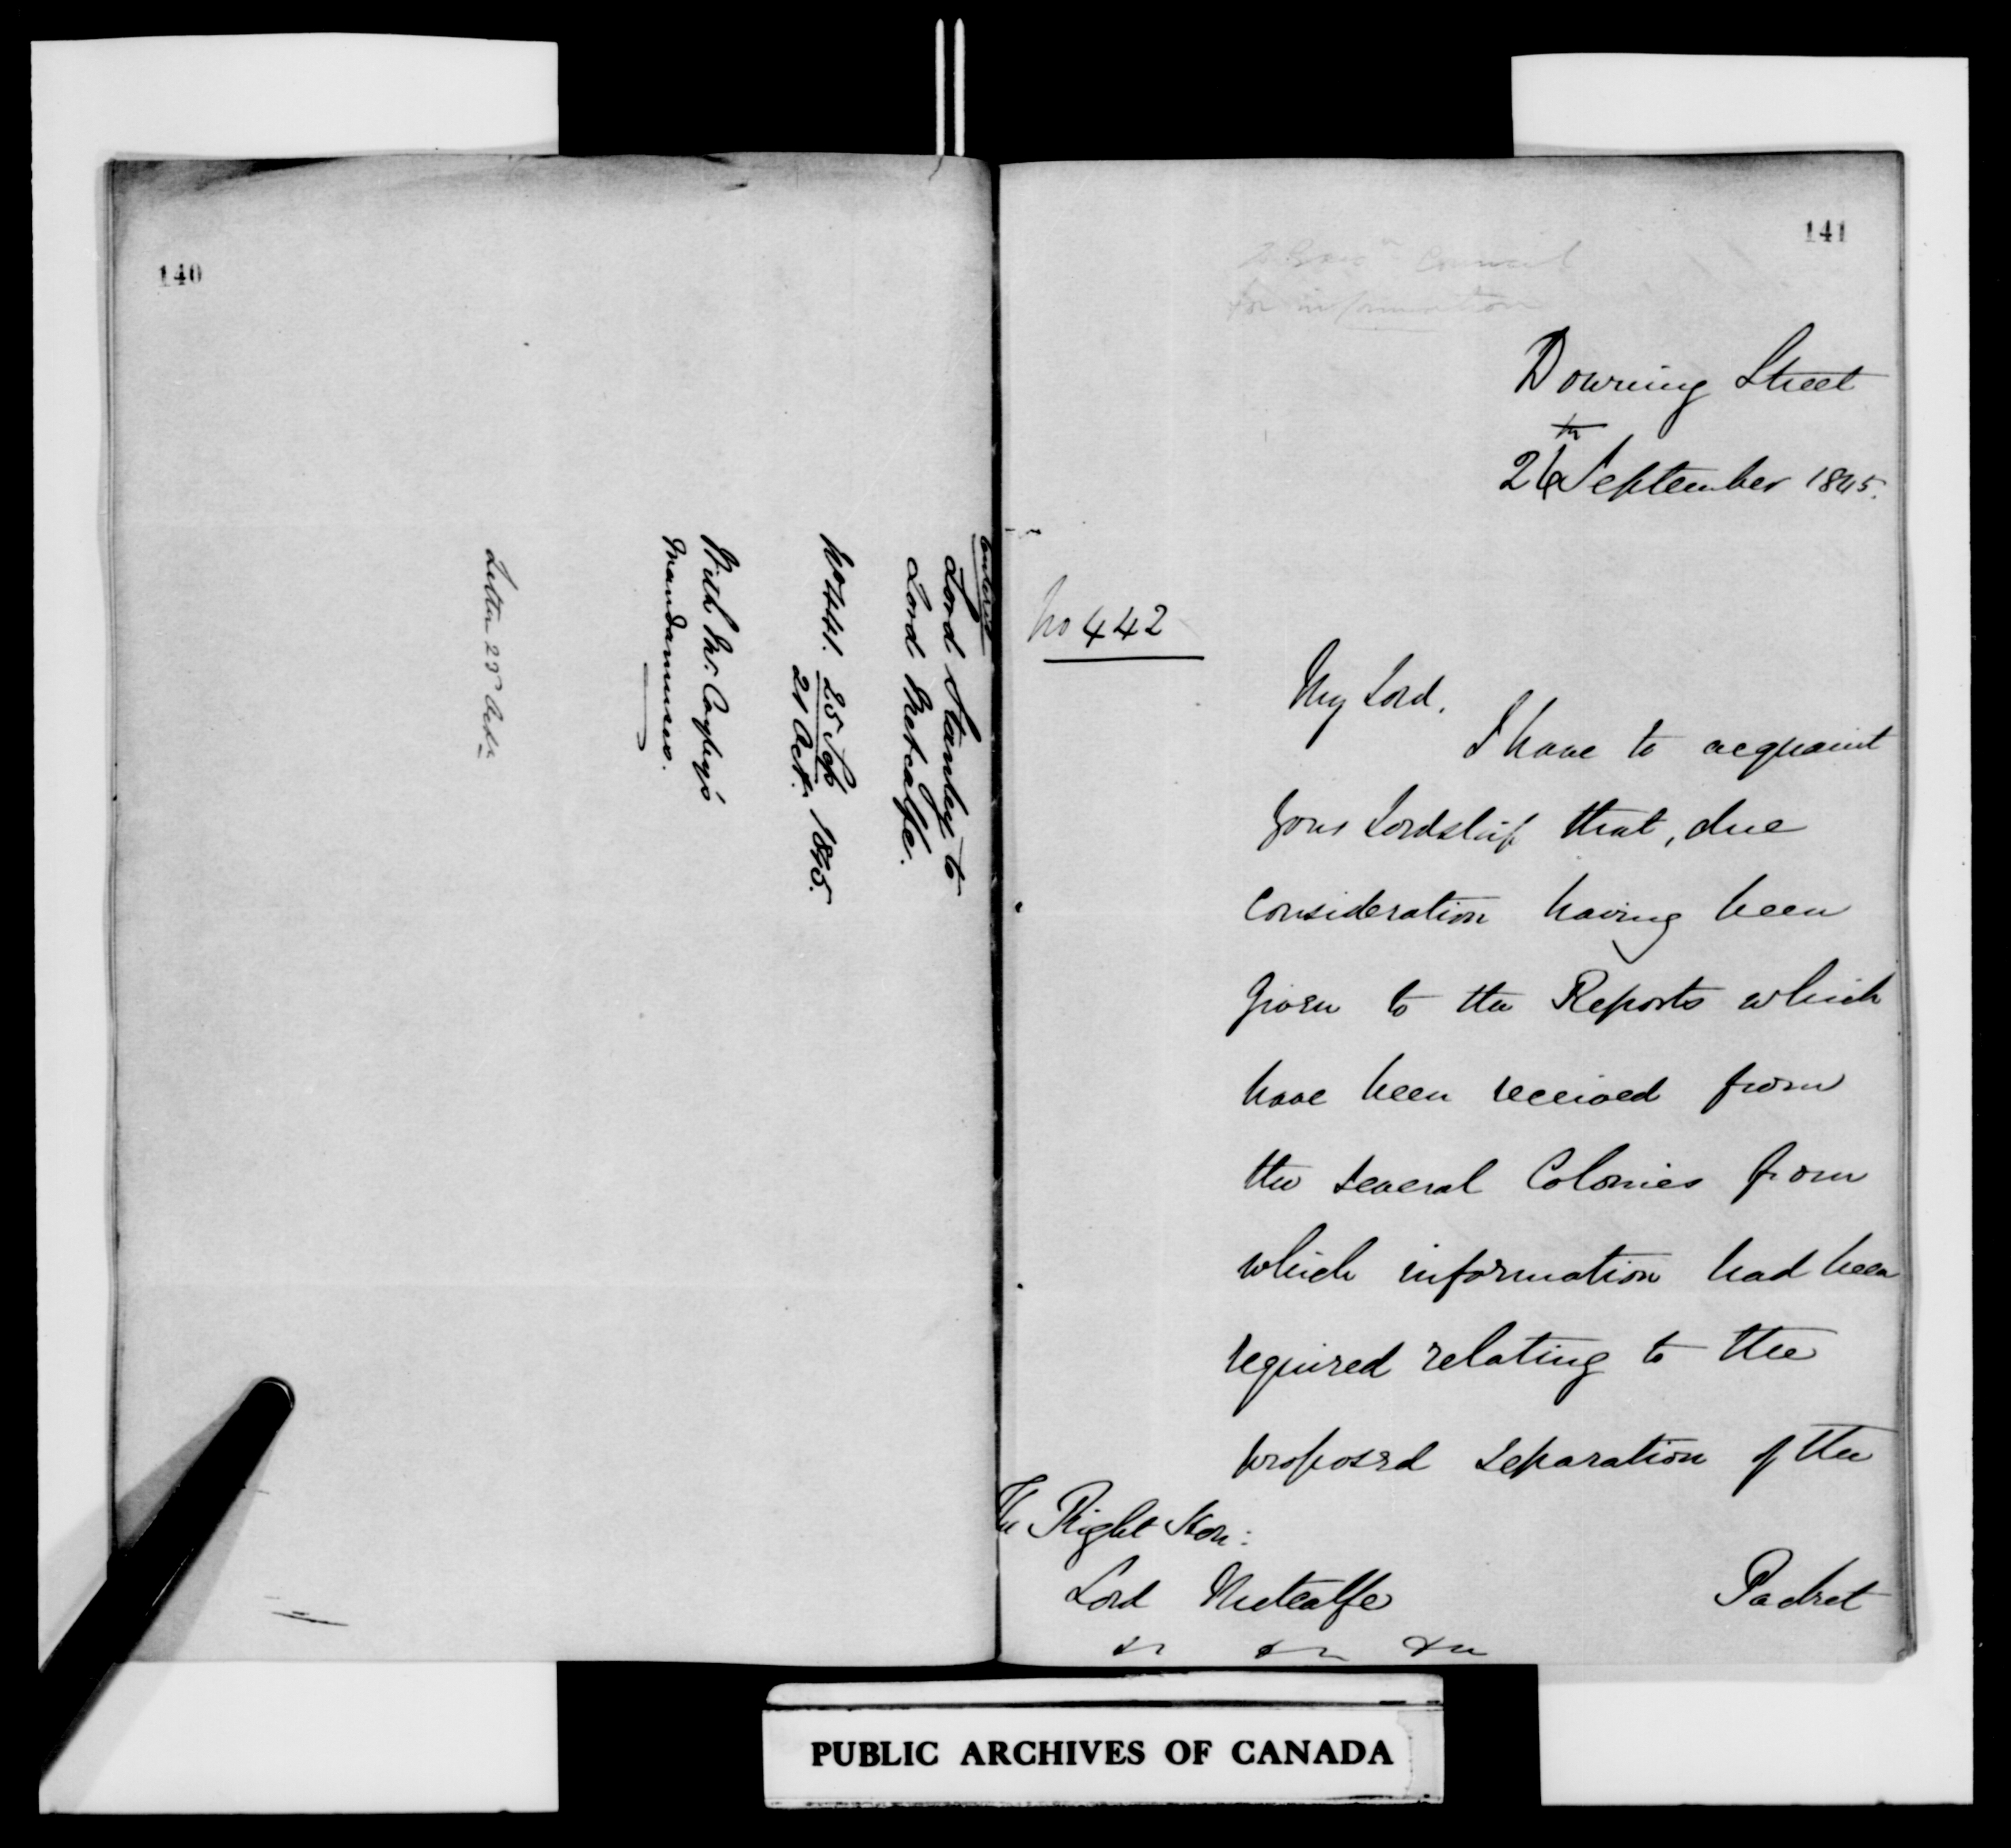 140
entered
Lord Stanley to
Lord Metcalfe.
No 441. 25 Sep 1845.
21 Oct.
With Mr. Cayley's
Mandamuses.
Letter 23d Octr
141
Council
for information
Downing Street
26th September 1845.
No 442
My Lord,
I have to acquaint
Your Lordship that, due
consideration having been
given to the Reports which
have been received from
the several Colonies from
which information had been
required relating to the
proposed separation of the
The Right Hon:
Lord Metcalfe
&c &c &c
Packet
PUBLIC ARCHIVES OF CANADA